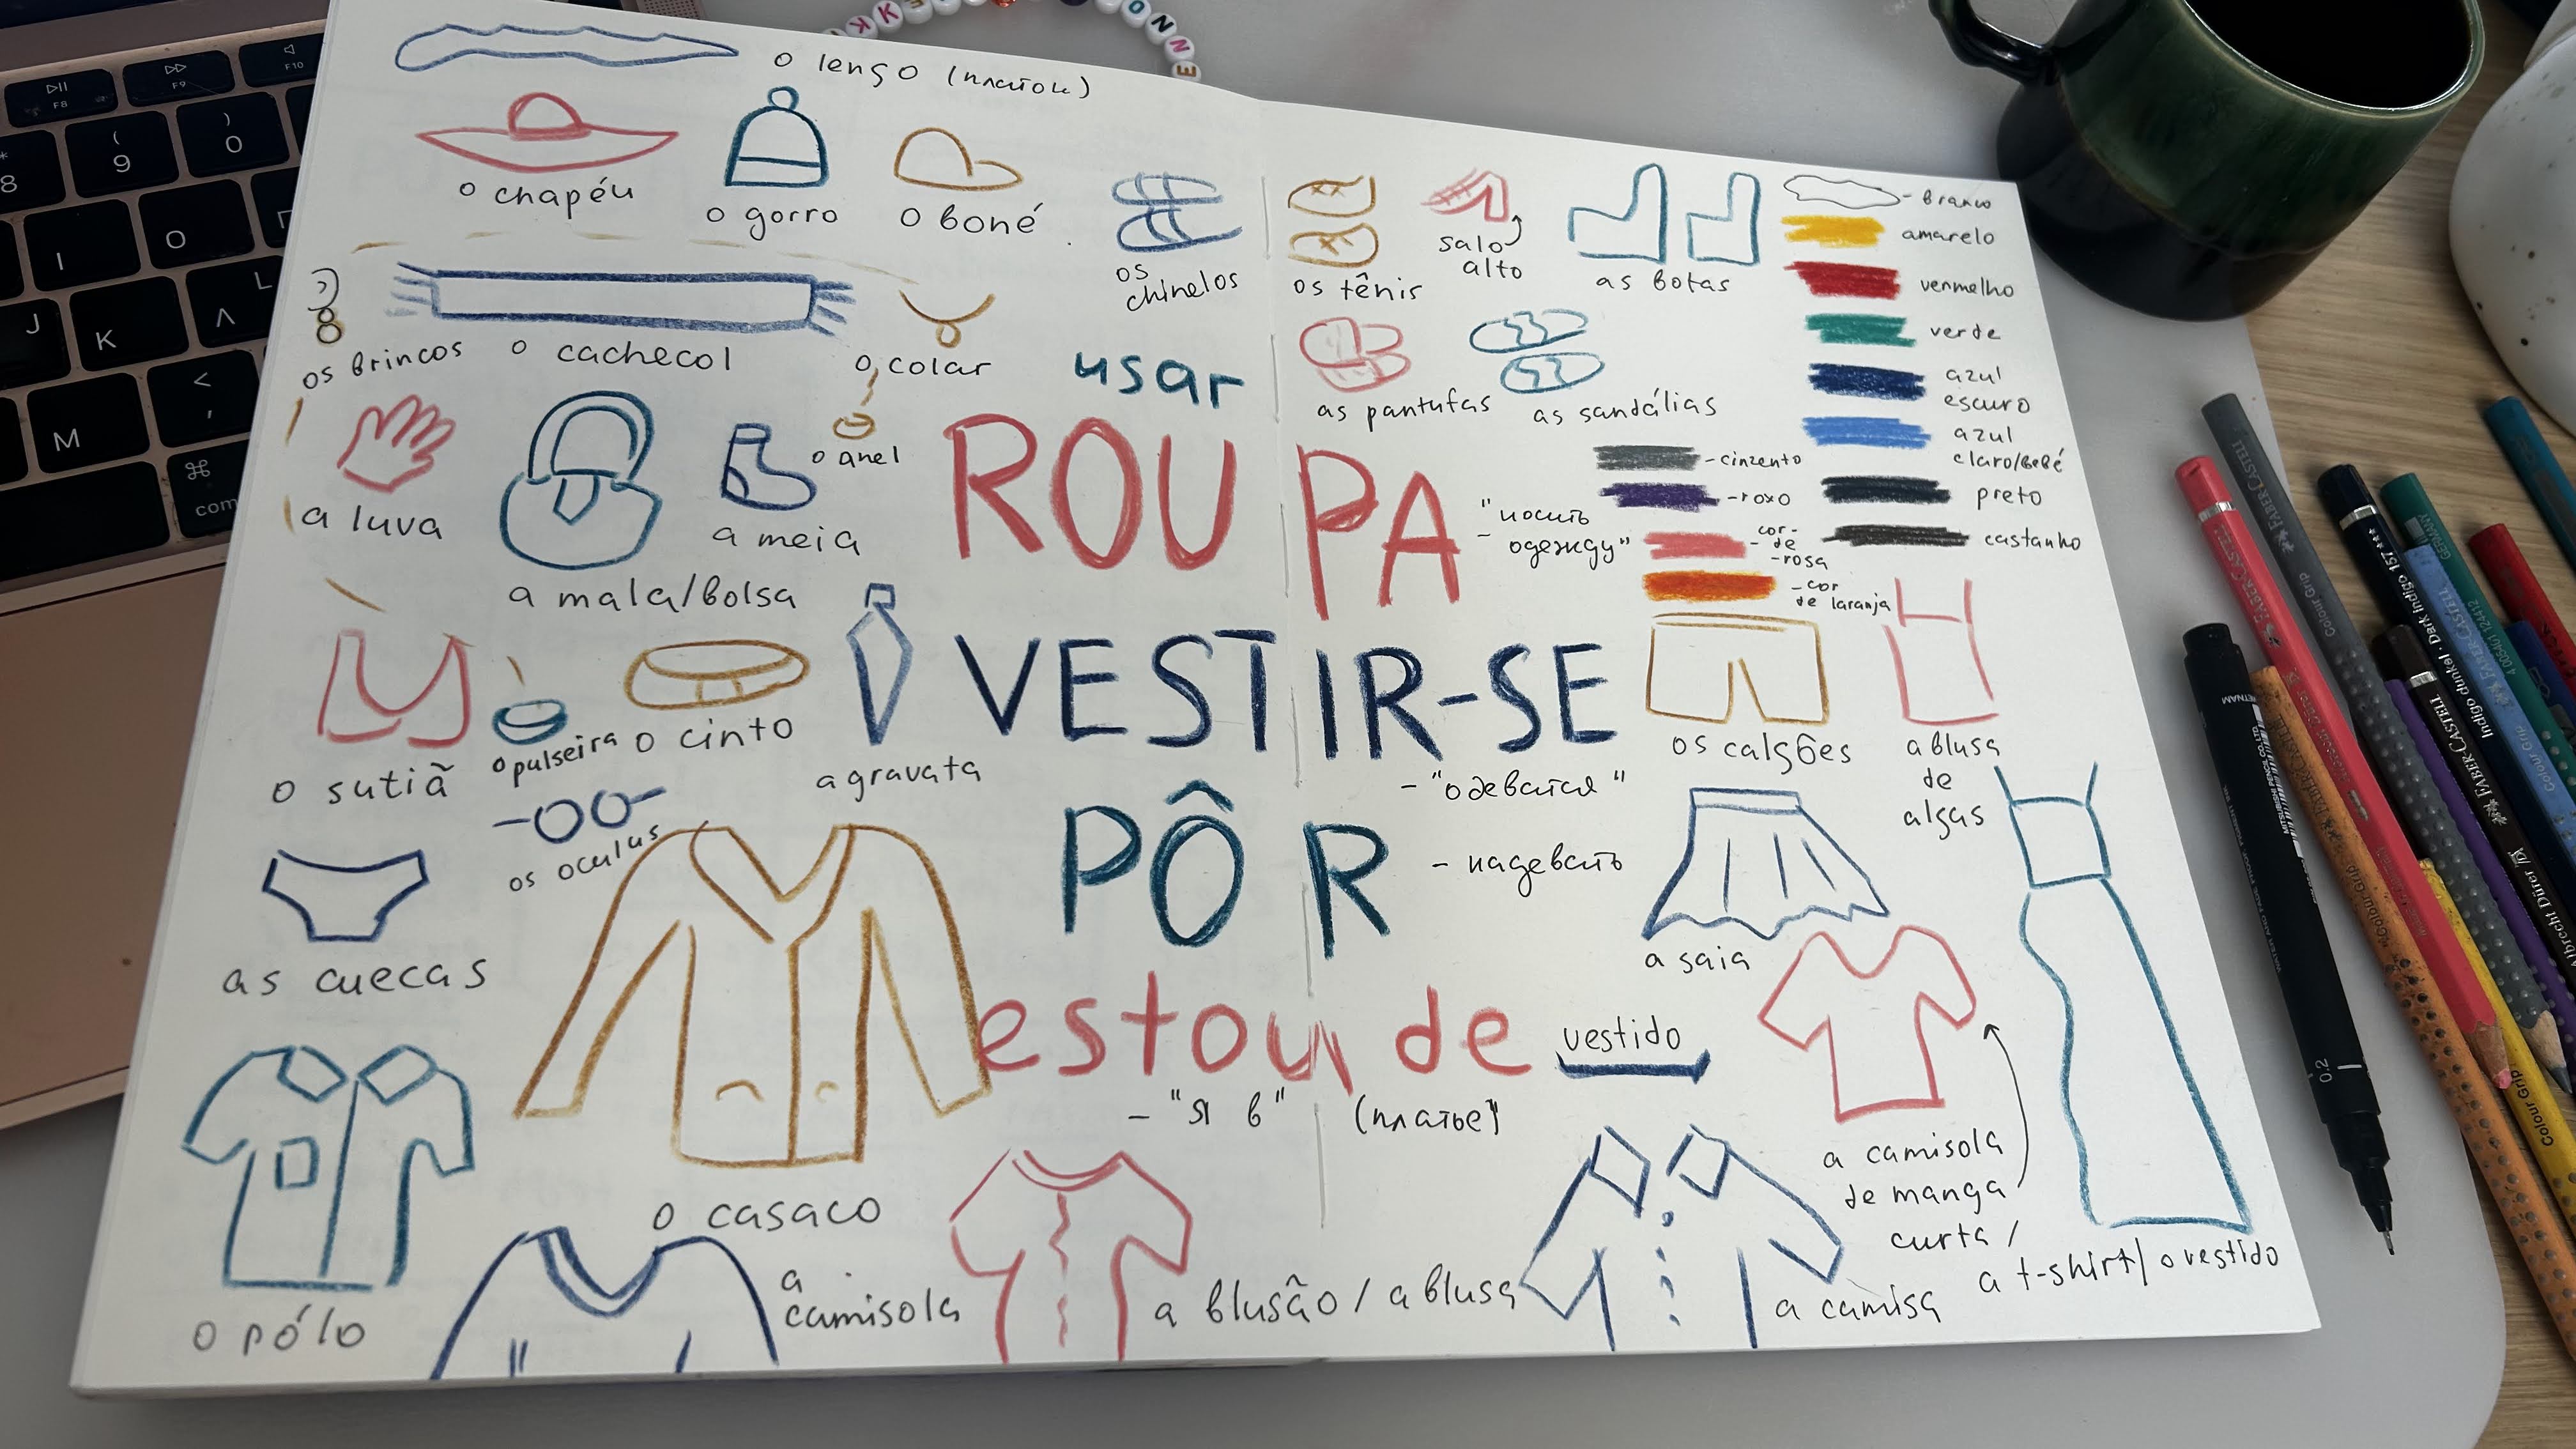 o lenço (платок)
o chapéu
o gorro
o boné
os
chinelos
os tênis
salo
alto
as botas
- branco
amarelo
vermelho
verde
azul
escuro
azul
claro/bebé
preto
castanho
- cinzento
- roxo
- cor-
de
-rosa
- cor
de laranja
os brincos
o cachecol
o colar
o anel
usar
as pantufas
as sandálias
a luva
a mala/bolsa
a meia
ROUPA
- "носить
одежду"
o sutiã
o pulseira
o cinto
a gravata
VESTIR-SE
- "одеватся"
os calsões
a blusa
de
alças
os oculus
as cuecas
PÔR
- надевать
a saia
estou de vestido
- "я в" (платье)
o pólo
o casaco
a
camisola
a blusão / a blusa
a camisa
a camisola
de manga
curta /
a t-shirt/
o vestido
F8
F9
F10
8
9
0
I
O
J
K
L
M
com
KK
ONNE
FABER-CASTELL
Colour Grip
Dark Indigo 157
Indigo dunkel
GERMANY
Albrecht Dürer
0.2